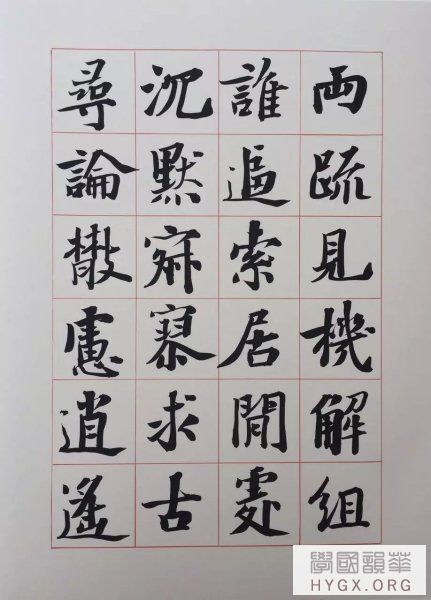 両疏見機解組
誰逼索居閒處
沉默寂寥求古
尋論散慮逍遙
學國韻華
HYGX.ORG